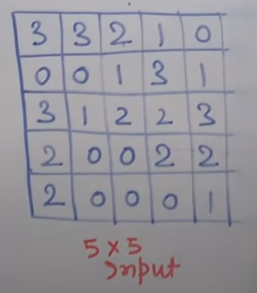 3 3 2 1 0
0 0 1 3 1
3 1 2 2 3
2 0 0 2 2
2 0 0 0 1
5 x 5
Input